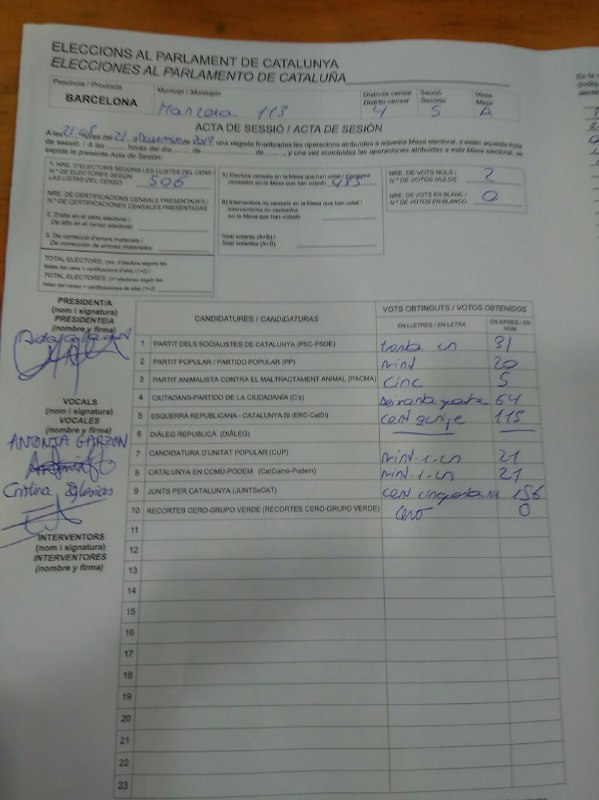 ELECCIONS AL PARLAMENT DE CATALUNYA
ELECCIONES AL PARLAMENTO DE CATALUÑA
Província / Provincia
Municipi / Municipio
Districte censal
Distrito censal
Secció
Sección
Mesa
Mesa
BARCELONA
113
4 5 A
ACTA DE SESSIÓ / ACTA DE SESIÓN
A les hores del 21, una vegada finalitzades les operacions atribuïdes a aquesta Mesa electoral, s'estén aquest full
de sessió. / A las horas del día de de y una vez concluidas las operaciones atribuidas a esta Mesa electoral, se
expide la presente Acta de Sesión:
1. NRE. D'ELECTORS SEGONS LES LLISTES DEL CENS /
N.º DE ELECTORES SEGÚN
LAS LISTAS DEL CENSO
506
NRE. DE CERTIFICACIONS CENSALS PRESENTADES /
N.º DE CERTIFICACIONES CENSALES PRESENTADAS
2. D'alta en el cens electoral /
De alta en el censo electoral:
3. De correcció d'errors materials /
De corrección de errores materiales:
TOTAL ELECTORS:
TOTAL ELECTORES:
A) Electors censats en la Mesa que han votat / Electores
censados en la Mesa que han votado
B) Interventors no censats en la Mesa que han votat /
Interventores no censados
en la Mesa que han votado
Total votants (A+B) /
Total votantes (A+B)
NRE. DE VOTS NULS /
N.º DE VOTOS NULOS
2
NRE. DE VOTS EN BLANC /
N.º DE VOTOS EN BLANCO
0
PRESIDENT/A
(nom i signatura)
PRESIDENTE/A
(nombre y firma)
VOCALS
(nom i signatura)
VOCALES
(nombre y firma)
ANTONIA GARZON
Cristina Iglesias
INTERVENTORS
(nom i signatura)
INTERVENTORES
(nombre y firma)
CANDIDATURES / CANDIDATURAS
VOTS OBTINGUTS / VOTOS OBTENIDOS
EN LLETRES / EN LETRA
EN XIFRES / EN NÚM.
1 PARTIT DELS SOCIALISTES DE CATALUNYA (PSC-PSOE) trenta un 31
2 PARTIT POPULAR / PARTIDO POPULAR (PP) vint 20
3 PARTIT ANIMALISTA CONTRA EL MALTRACTAMENT ANIMAL (PACMA) cinc 5
4 CIUTADANS-PARTIDO DE LA CIUDADANÍA (Cs) 64
5 ESQUERRA REPUBLICANA - CATALUNYA SÍ (ERC-CatSí) cent quinze 115
6 DIÀLEG REPUBLICÀ (DIÀLEG)
7 CANDIDATURA D'UNITAT POPULAR (CUP) vint-i-un 21
8 CATALUNYA EN COMÚ-PODEM (CatComú-Podem) vint-i-un 21
9 JUNTS PER CATALUNYA (JUNTSxCAT) cent 156
10 RECORTES CERO-GRUPO VERDE (RECORTES CERO-GRUPO VERDE) cero 0
11
12
13
14
15
16
17
18
19
20
21
22
23